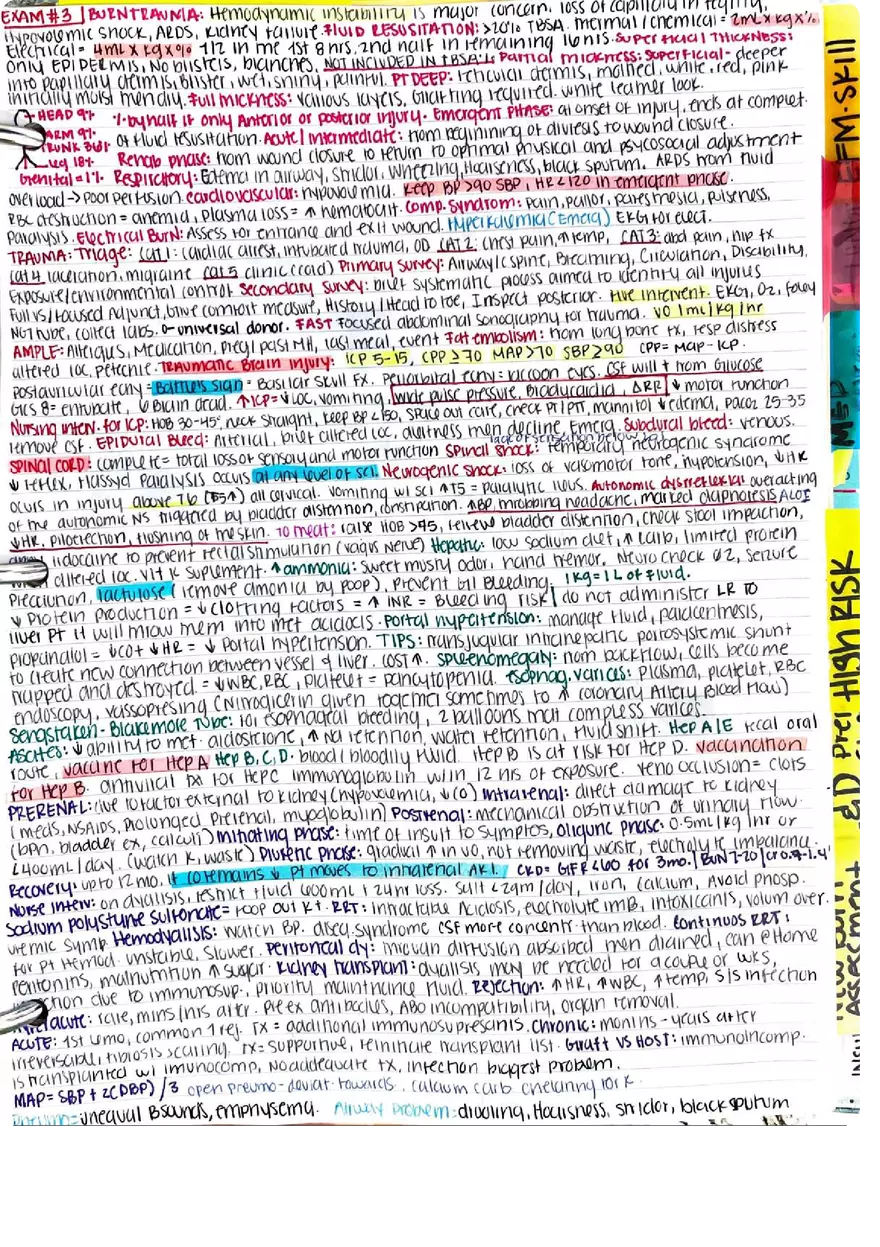 EXAM #3 | BURN TRAUMA: Hemodynamic instability is major concern. loss of capillary integrity,
hypovolemic shock, ARDS, kidney failure. FLUID RESUSITATION: >20% TBSA. Thermal/chemical = 2mL x kg x %
Electrical = 4mL x kg x % 1/2 in the 1st 8 hrs. 2nd half in remaining 16 hrs. Superficial Thickness:
only EPIDERMIS, No blisters, blanches, NOT INCLUDED IN TBSA%. Partial thickness: superficial- deeper
into papillary dermis, blister, wet, shiny, painful. PT DEEP: reticular dermis, mottled, white, red, pink
initially moist then dry. Full thickness: various layers, grafting required. white leather look.
HEAD 9% % by half if only Anterior or posterior injury. Emergent PHASE: at onset of injury, ends at complet.
ARM 9% of fluid resusitation. Acute/Intermediate: from beginning of diuresis to wound closure.
TRUNK 36%
Leg 18% Rehab phase: from wound closure to return to optimal physical and psycosocial adjustment
Genital = 1% Respiratory: Edema in airway, stridor, wheezing, Hoarseness, black sputum. ARDS from fluid
overload -> poor perfusion. cardiovascular: hypovolemia. Keep BP >90 SBP, HR <120 in emergent phase.
RBC destruction = anemia, plasma loss = ↑ hematocrit. Comp. Syndrom: pain, pallor, paresthesia, pulseness,
Paralysis. Electrical Burn: Assess for entrance and exit wound. Hyperkalemia (Emerg) EKG for elect.
TRAUMA: Triage: CAT 1: cardiac arrest, intubated trauma, OD CAT 2: chest pain, ↑temp, CAT 3: abd pain, hip fx
CAT 4 laceration, migraine CAT 5 clinic (cold) Primary Survey: Airway/C spine, Breathing, Circulation, Disability,
Exposure/environmental control Secondary Survey: brief systematic process aimed to identify all injurys
Full vs/focused Adjunct, give comfort measure, History/Head to toe, Inspect posterior. Five intervent. EKG, O2, foley
NG tube, collect labs. O- universal donor. FAST Focused abdominal sonography for trauma. VO 1mL/kg/hr
AMPLE: Allergies, Medication, Preg/past MH, last meal, event Fat embolism: from long bone fx, resp distress
altered loc, petechie. TRAUMATIC Brain Injury: ICP 5-15, CPP ≥70 MAP >70 SBP ≥90 CPP = MAP - ICP.
Postauricular ecchy = Battle's sign = Basilar skull fx. Periorbital ecchy = raccoon eyes. CSF will + from Glucose
GCS 8 = entubate, brain dead. ↑ICP = ↓LOC, vomiting, wide pulse pressure, Bradycardia, ΔRR ↓ motor function
Nursing interv. for ICP: HOB 30-45°, neck straight, keep BP <150, space out care, check PT/PTT, mannitol ↓edema, PaCO2 25-35
remove CSF. EPIDURAL Bleed: Arterial, brief altered loc, alertness then decline, Emerg. Subdural bleed: venous.
SPINAL CORD: complete = total loss of sensory and motor function Spinal shock: temporary neurogenic syndrome
↓ reflex, flassyd paralysis occurs at any level of sci. Neurogenic shock: loss of vasomotor tone, hypotension, ↓HR
occurs in injury above T6 all cervical. vomiting w/ sci ↑T5 = paralytic ileus. Autonomic dysreflexia: overacting
of the autonomic NS triggered by bladder distention, constipation. ↑BP, throbbing headache, marked diaphoresis, ALOC
↓HR, piloerection, flushing of the skin. To treat: raise HOB >45, relieve bladder distention, check stool impaction,
lidocaine to prevent rectal stimulation (vagus nerve) Hepatic: low sodium diet, ↑ carb, limited protein
altered loc. Vit K suplement. ↑ammonia: sweet musty odor, hand tremor. Neuro check Q2, seizure
precaution, lactulose (remove amonia by poop), prevent GI Bleeding. 1kg = 1L of fluid.
↓ Protein production = ↓clotting factors = ↑ INR = Bleeding risk/ do not administer LR to
liver PT it will throw them into met acidosis. Portal hypertension: manage fluid, paracenthesis,
propanalol = ↓CO + ↓HR = ↓ Portal hypertension. TIPS: transjugular intrahepatic portosystemic shunt
to create new connection between vessel & liver. COST↑. Spleenomegaly: from backflow, cells become
trapped and destroyed = ↓WBC, RBC, platelet = pancytopenia. Esophag. varices: plasma, platelet, RBC
endoscopy, vassopresing (Nitroglicerin given together sometimes to ↑ coronary Artery Blood Flow)
Sengstaken-Blakemore Tube: for esophageal bleeding, 2 balloons that compless varices.
Ascites: ↓ ability to met. aldosterone, ↑ Na retention, water retention, fluid shift. Hep A/E fecal oral
route, vaccine for Hep A Hep B, C, D- blood/bloodily fluid. Hep B is at risk for Hep D. vaccination
for Hep B. antiviral tx for Hep C immunoglobulin w/in 12 hrs of exposure. veno occlusion = clots
PRERENAL: due to factor external to kidney (hypovolemia, ↓CO) Intrarenal: direct damage to kidney
(meds, NSAIDs, prolonged prerenal, myoglobulin) Postrenal: mechanical obstruction of urinary flow.
(bph, bladder ex, calculi) Initiating phase: time of insult to symptos, oliguric phase: 0.5mL/kg/hr or
<400mL/day. (watch K, waste) Diuretic phase: gradual ↑ in VO, not removing waste, electrolyte imbalance
Recovery: up to 12 mo. if CO remains ↓ PT moves to intrarenal AKI. CKD = GFR <60 for 3mo. | BUN 7-20 | Cr 0.7-1.4
Nurse interv: on dyalisis, restrict fluid 600mL + 24hr loss. salt <2gm/day, iron, calcium, Avoid phosp.
Sodium polystyrne sulfonate = Poop out K+. RRT: intractable Acidosis, electrolyte imb, intoxicants, volum over.
uremic symp. Hemodyalisis: watch BP. diseq. syndrome CSF more concentr than blood. Continuos RRT:
for PT Hemod. unstable, slower. Peritoneal dy: diffusion absorbed then drained, can @Home
Peritonins, malnutrition ↑ sugar. Kidney transplant: dyalisis may be needed for a couple of wks,
due to immunosup, priority maintnance fluid. Rejection: ↑HR, ↑WBC, ↑temp, S/S infection
acute: rare, mins/hrs after. Pre ex antibodies, ABO incompatibility, organ removal.
ACUTE: 1st 6mo, common 1 rej. TX = additional immunosupresants. Chronic: months-years after
irreverscible, fibrosis scaring. TX = supportive, reinitiate transplant list. Graft VS HOST: immunoincomp.
is transplanted w/ imunocomp, no adeequate tx, infection biggest problem.
MAP = SBP + 2(DBP) /3 open pneumo-deviat. towards. calcium carb chelating for K
Pneumo = unequal B sounds, emphysema. Airway Problem = drooling, Hoarsness, stridor, black sputum
FM. SKILL
MED
HIGH RISK
New Born
Assessment